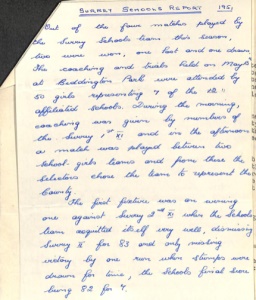 SURREY SCHOOLS REPORT 1951
Out of the four matches played by
the Surrey Schools team this season,
two were won, one lost and one drawn.
The coaching and trials held on May 5th
at Beddington Park were attended by
50 girls representing 7 of the 12
affiliated schools. During the morning,
coaching was given by members of
the Surrey 1st XI and in the afternoon
a match was played between two
school girls teams and from these the
selectors chose the team to represent the
County.
The first fixture was an evening
one against Surrey 2nd XI when the Schools
team acquitted itself very well, dismissing
Surrey II for 83 and only missing
victory by one run when stumps were
drawn for time, the Schools final score
being 82 for 7.